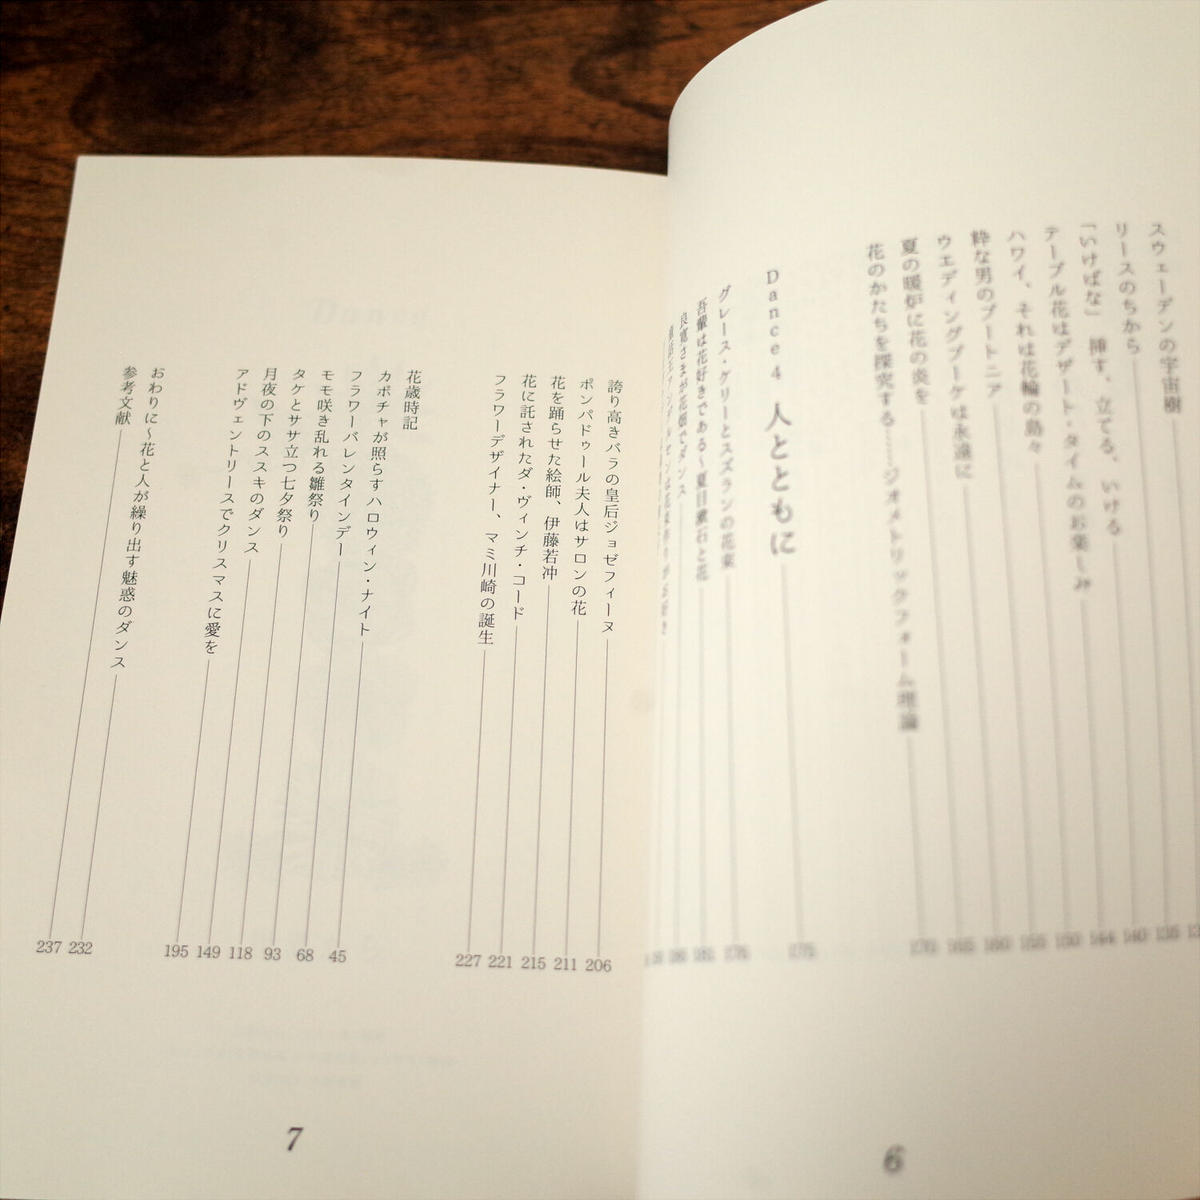 スウェーデンの宇宙樹
リースのちから 135
「いけばな」 挿す、立てる、いける 140
テーブル花はデザート・タイムのお楽しみ 144
ハワイ、それは花輪の島々 150
粋な男のブートニア 155
ウエディングブーケは永遠に 160
夏の暖炉に花の炎を 165
花のかたちを探究する……ジオメトリックフォーム理論 170
Dance4 人とともに 175
グレース・ケリーとスズランの花束 176
吾輩は花好きである〜夏目漱石と花 181
良寛さまが花畑でダンス 186
アンデルセンは花束作りがお好き
6
誇り高きバラの皇后ジョゼフィーヌ 206
ポンパドゥール夫人はサロンの花 211
花を踊らせた絵師、伊藤若冲 215
花に託されたダ・ヴィンチ・コード 221
フラワーデザイナー、マミ川崎の誕生 227
花歳時記
カボチャが照らすハロウィン・ナイト 45
フラワーバレンタインデー 68
モモ咲き乱れる雛祭り 93
タケとササ立つ七夕祭り 118
月夜の下のススキのダンス 149
アドヴェントリースでクリスマスに愛を 195
おわりに〜花と人が繰り出す魅惑のダンス 232
参考文献 237
7